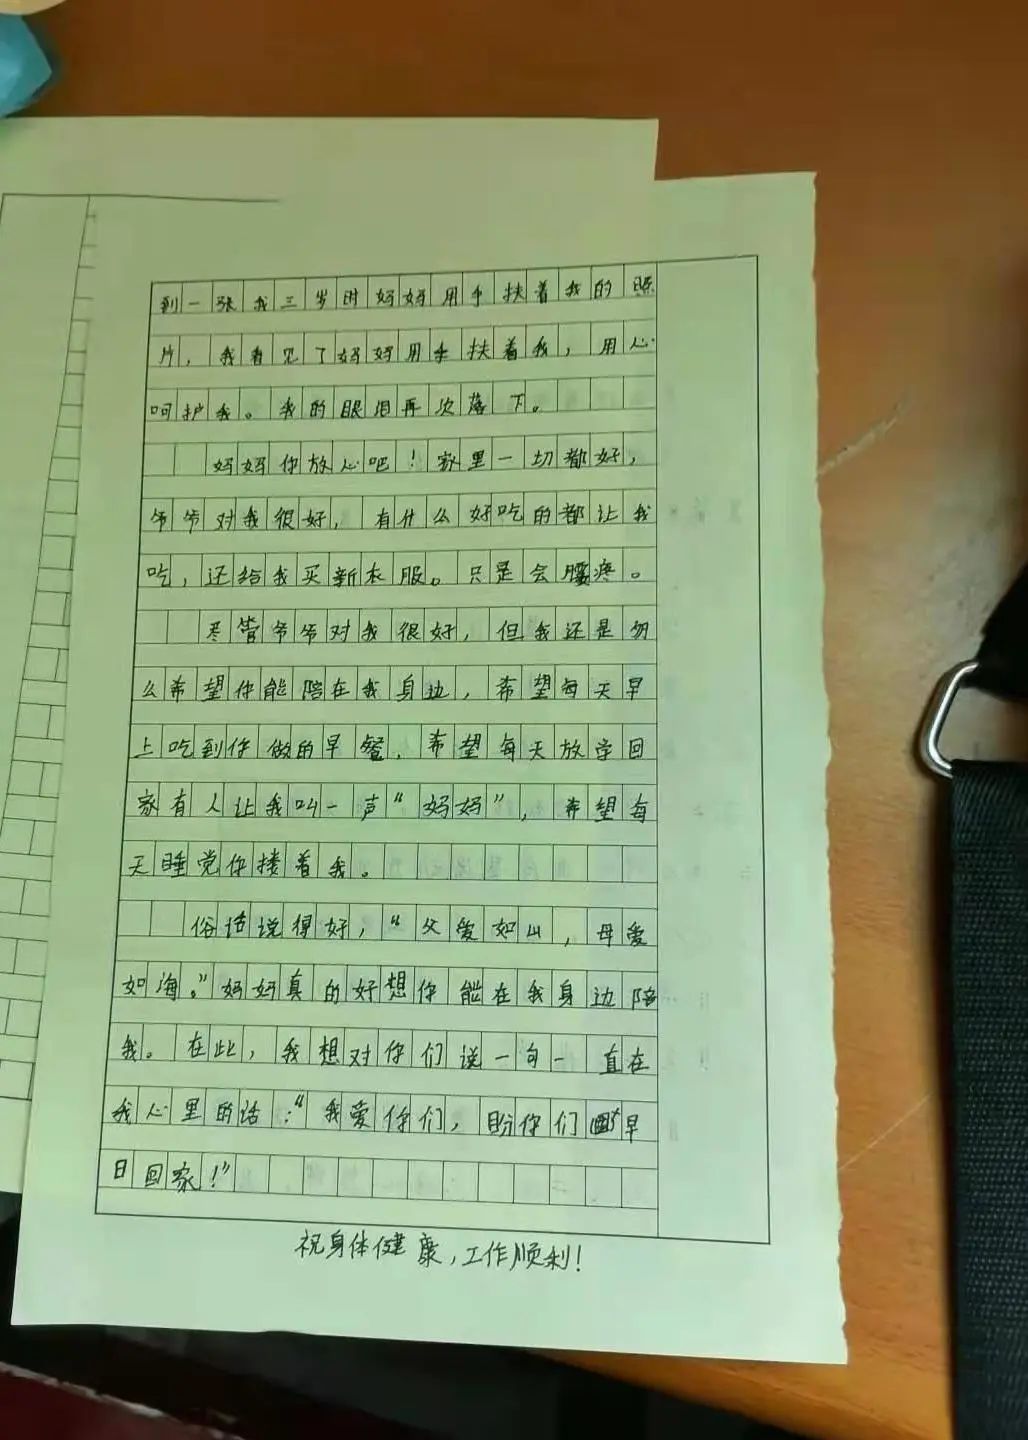 到一张我三岁时妈妈用手扶着我的照
片，我看见了妈妈用手扶着我，用心
呵护我。我的眼泪再次落下。
妈妈你放心吧！家里一切都好，
爷爷对我很好，有什么好吃的都让我
吃，还给我买新衣服。只是会腰疼。
尽管爷爷对我很好，但我还是多
么希望你能陪在我身边，希望每天早
上吃到你做的早餐，希望每天放学回
家有人让我叫一声“妈妈”，希望每
天睡觉你搂着我。
俗话说得好，“父爱如山，母爱
如海。”妈妈真的好想你能在我身边陪
我。在此，我想对你们说一句一直在
我心里的话：“我爱你们，盼你们早
日回家！”
祝身体健康，工作顺利！